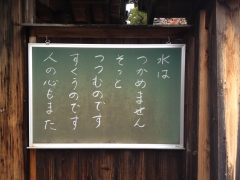 水は
つかめません
そっと
つつむのです
すくうのです
人の心もまた